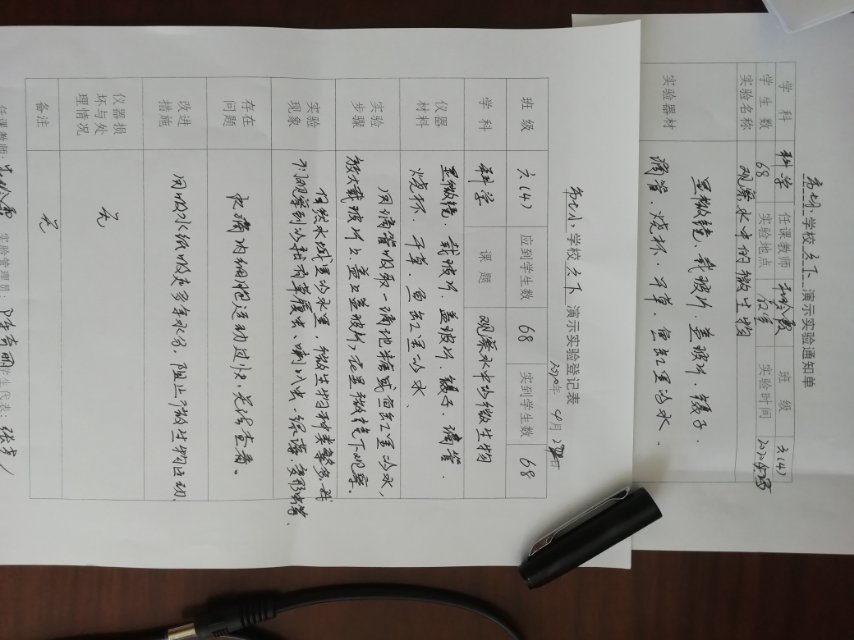 学校六下演示实验通知单
学科 科学 任课教师 班级 六(4)
学生数 68 实验地点 仪室 实验时间
实验名称 观察水中的微生物
实验器材 显微镜、载玻片、盖玻片、镊子、
滴管、烧杯、干草、鱼缸里的水。
学校六下演示实验登记表
2020年4月 日
班级 六(4) 应到学生数 68 实到学生数 68
学科 科学 课题 观察水中的微生物
仪器材料 显微镜、载玻片、盖玻片、镊子、滴管、
烧杯、干草、鱼缸里的水、
实验步骤 用滴管吸取一滴池塘或鱼缸里的水,
放在载玻片上,盖上盖玻片,在显微镜下观察。
实验现象 自然水域里的水里,微生物种类繁多,我
们观察到的有草履虫、喇叭虫、绿藻、变形虫等、
存在问题 水滴内细胞运动过快,无法查看。
改进措施 用吸水纸吸走多余水分,阻止了微生物运动、
仪器损坏与处理情况 无
备注 无
任课教师: 实验管理员: 学生代表: